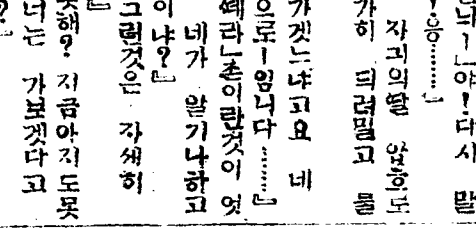 늬ㅣ야! 다시 말
!응………」
자긔의딸 압흐로
가히 듸려밀고 물
가겟느냐고요 네
으로ㅣ임니다……」
떼라」촌이란것이 엇
네가 알기나하고
이냐?」
그런것은 자세히
」
못해? 지금아지도못
너는 가보겟다고
?」